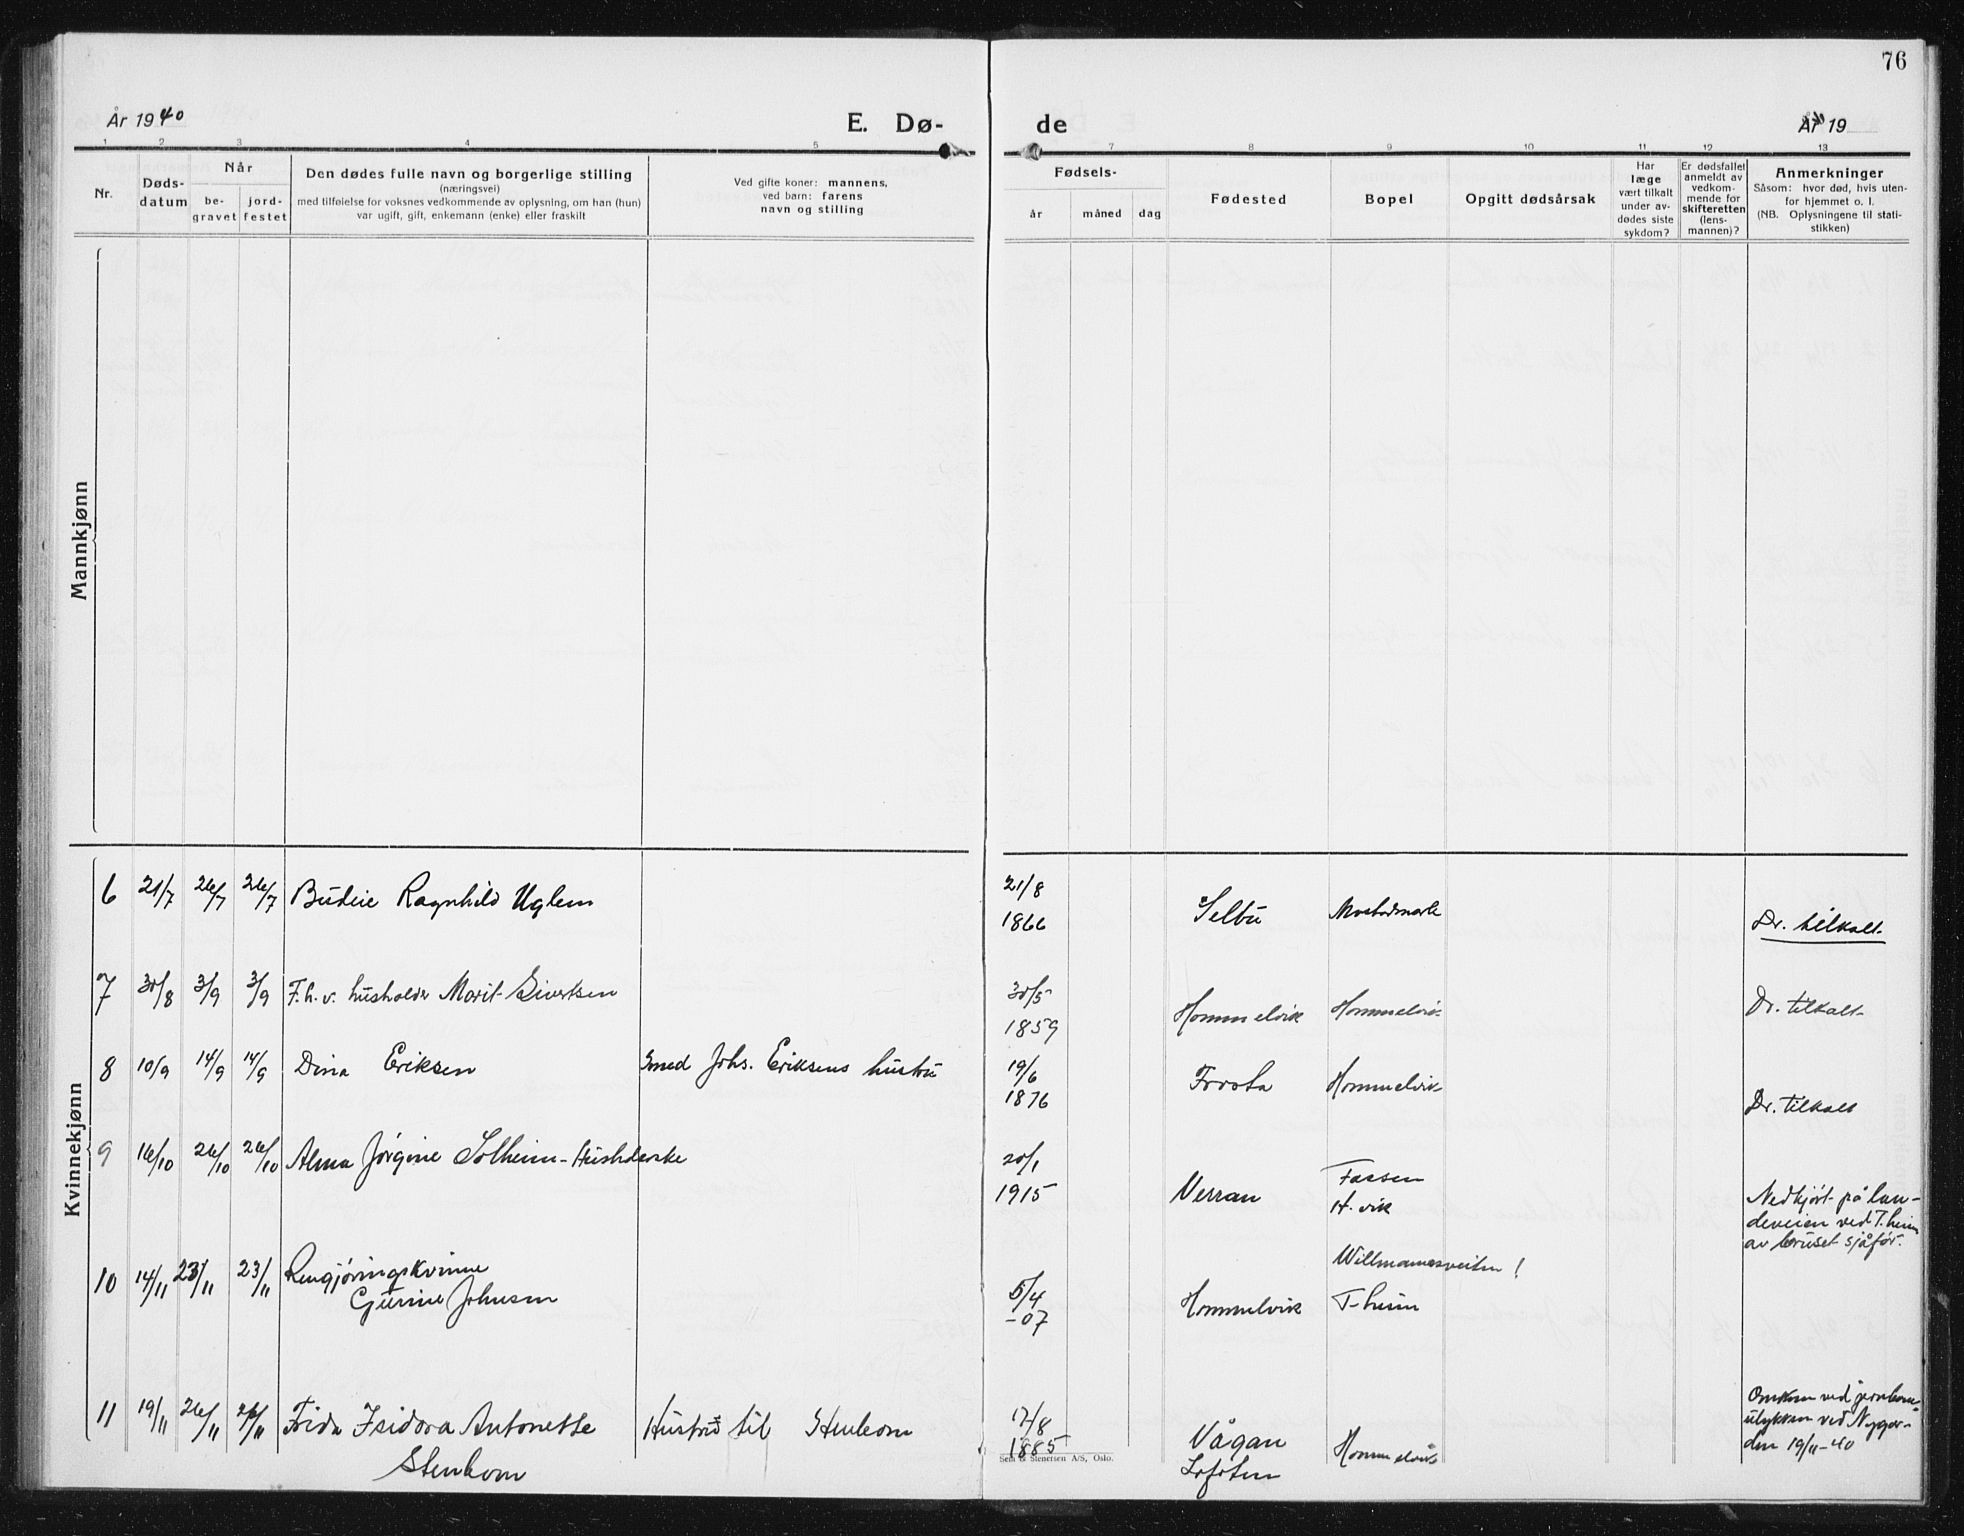 76
År 1940
E. Dø-
de
År 19
1 2 3 4 5 7 8 9 10 11 12 13
Nr.
Døds-
datum
Når
be-
gravet
jord-
festet
Den dødes fulle navn og borgerlige stilling
(næringsvei)
med tilføielse for voksnes vedkommende av oplysning, om han (hun)
var ugift, gift, enkemann (enke) eller fraskilt
Ved gifte koner: mannens,
ved barn: farens
navn og stilling
Fødsels-
år måned dag
Fødested
Bopel
Opgitt dødsårsak
Har
læge
vært tilkalt
under av-
dødes siste
sykdom?
Er dødsfallet
anmeldt av
vedkom-
mende for
skifteretten
(lens-
mannen)?
Anmerkninger
Såsom: hvor død, hvis uten-
for hjemmet o. l.
(NB. Oplysningene til stati-
stikken)
Mannkjønn
Kvinnekjønn
6 21/7 26/7 26/7 Budeie Ragnhild Uglem 21/8
1866 Selbu
Dr. tilkalt
7 30/8 3/9 3/9 F.h.v. husholder Marit Sivertsen 30/5
1859 Hommelvik Hommelvik Dr. tilkalt
8 10/9 14/9 14/9 Dina Eriksen Smed Johs. Eriksens hustru 19/6
1876 Frosta Hommelvik
Dr. tilkalt
9 16/10 26/10 26/10 Alma Jørgine Solheim - 20/1
1915 Verran
H.vik
Nedkjørt på lan-
deveien ved T.heim
av beruset sjåfør.
10 14/11 23/11 23/11 Rengjøringskvinne
Gurine Johnsen
5/4
-07 Hommelvik T-heim
11 19/11 26/11 26/11 Frida Isidora Antonette
Stenkom
Hustru til Stenkom
17/8
1885 Vågan
Lofoten
Hommelvik
Omkom ved jernbane-
ulykken ved Nygår-
den 19/11-40
Sem & Stenersen A/S, Oslo.